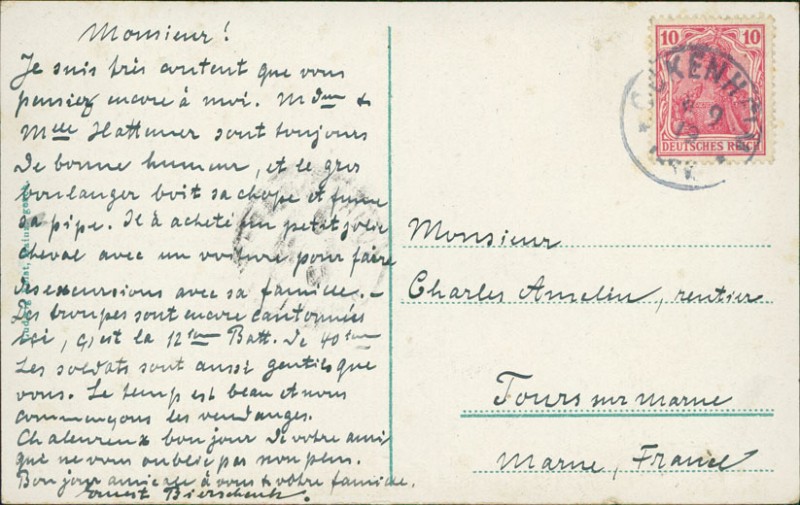 Monsieur!
Je suis très content que vous
pensiez encore à moi. Mdme &
Melle Hattemer sont toujours
de bonne humeur, et le gros
boulanger boit sa chope et fume
sa pipe. Il à acheté un petit jolie
cheval avec un voiture pour faire
des excursions avec sa famille. –
Les troupes sont encore cantonnées
ici, c'est la 12ème Batt. de 40ème
Les soldats sont aussi gentils que
vous. Le temp est beau et nous
commençons les vendanges.
Chaleureux bon jour de votre ami
que ne vous oublie pas non plus.
Bon jour amicale à vous & votre famille.
Ernest Bierschenk.
10 10
DEUTSCHES REICH
Monsieur
Charles Amelin, rentier
Tours sur Marne
Marne, France